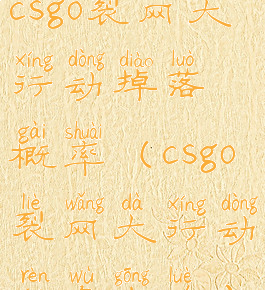 csgo裂网大
xíng dòng diào luò
行动掉落
gài shuài
概率 (csgo
liè wǎng dà xíng dòng
裂网大行动
rèn wù gōng lüè